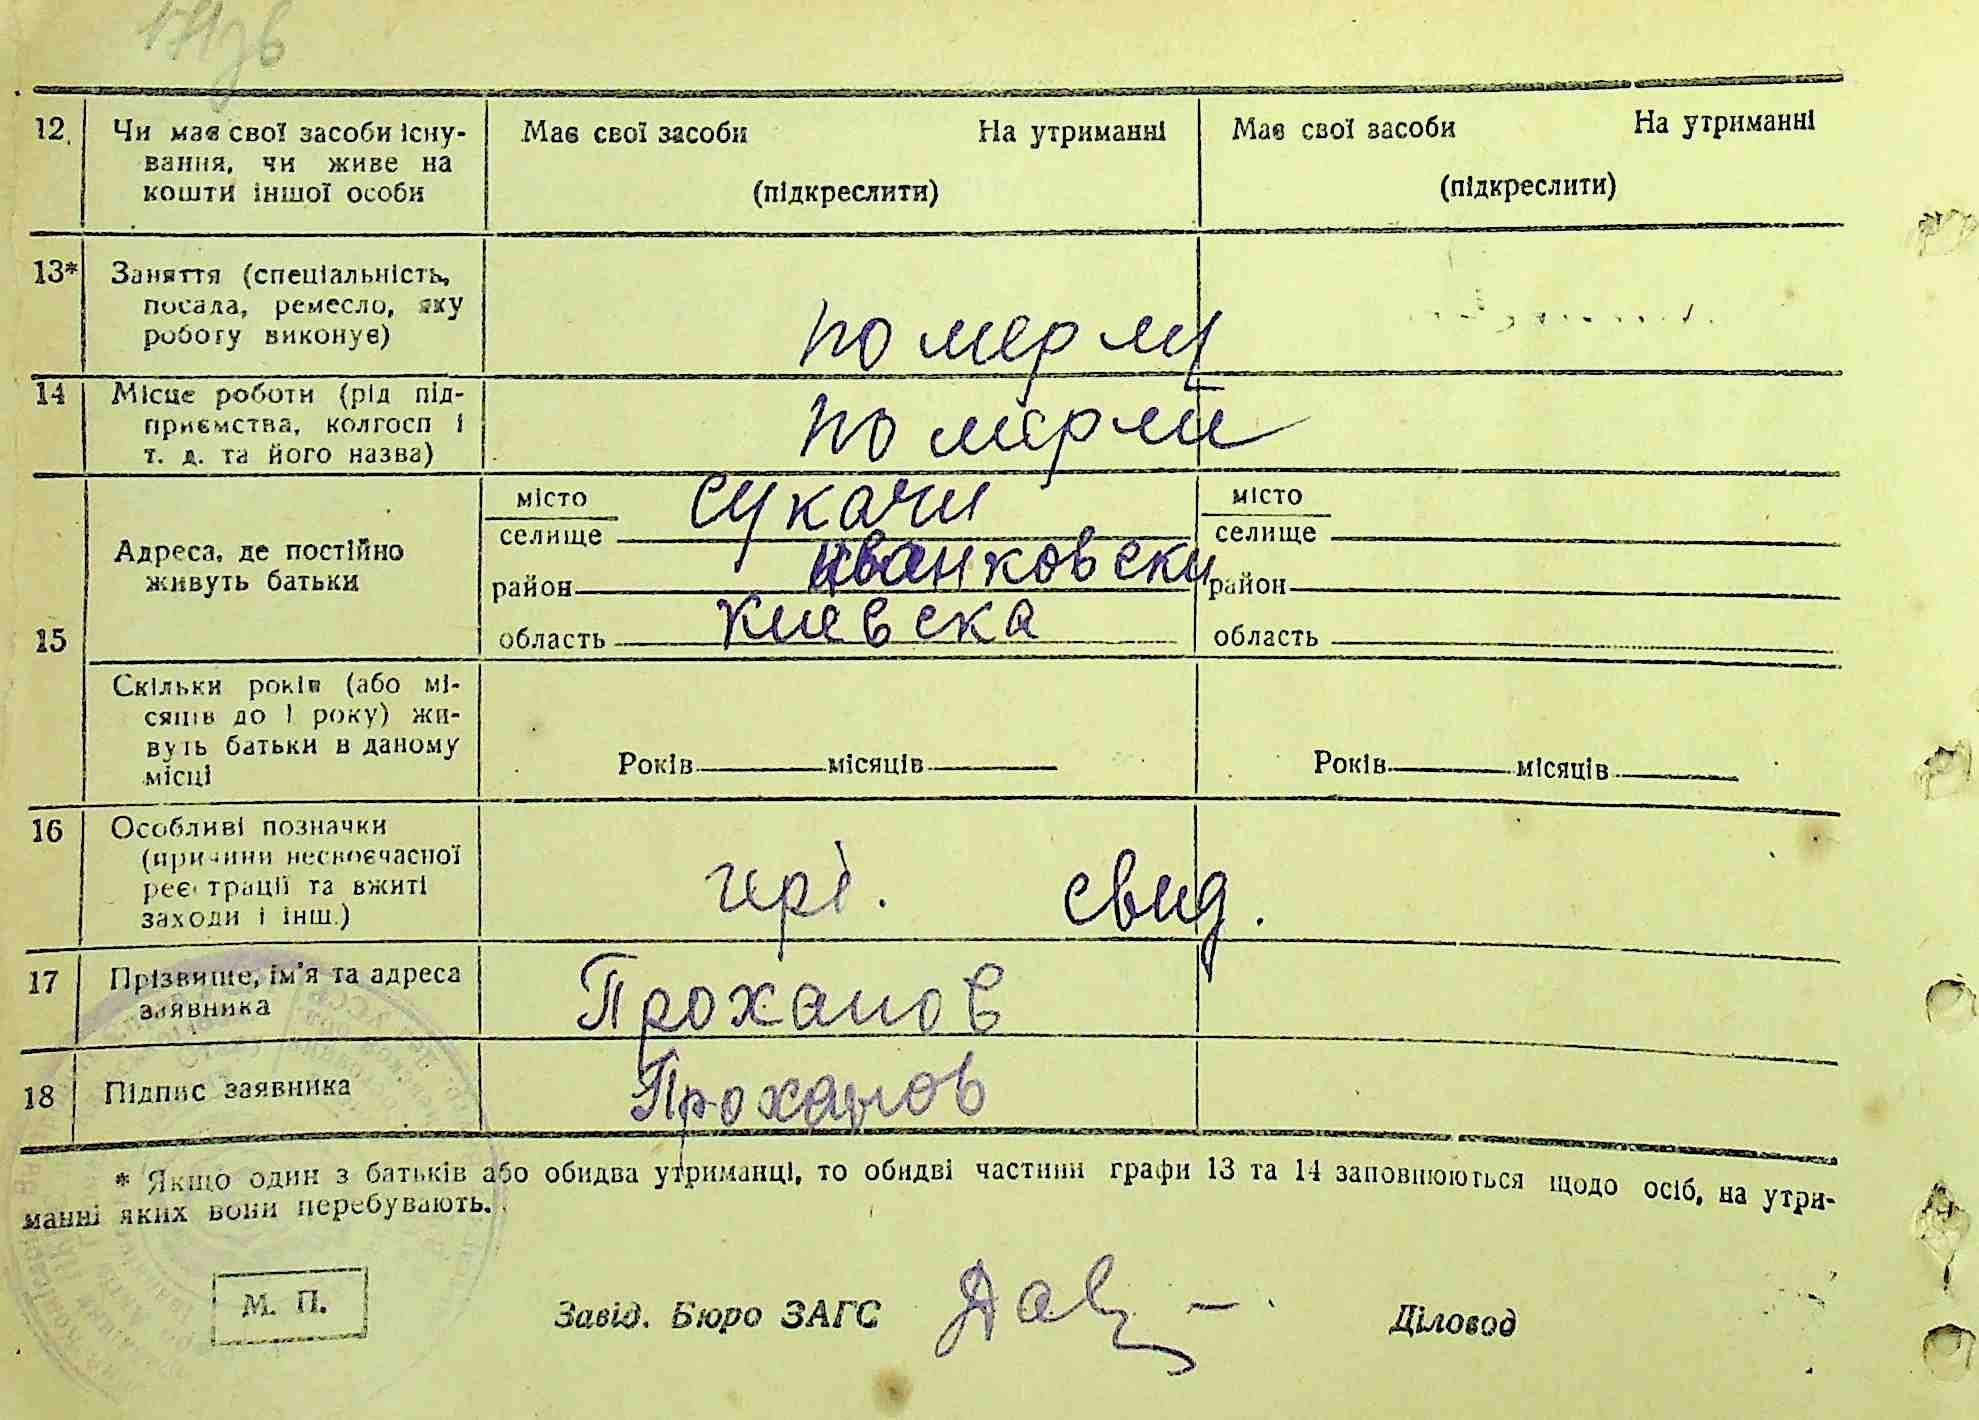 12. Чи має свої засоби існу-
вання, чи живе на
кошти іншої особи
Має свої засоби На утриманні
(підкреслити)
Має свої засоби На утриманні
(підкреслити)
13* Заняття (спеціальність,
посада, ремесло, яку
роботу виконує)
померли
14 Місце роботи (рід під-
приємства, колгосп і
т. д. та його назва)
померли
15 Адреса, де постійно
живуть батьки
місто
селище Сукачи
район иванковски
область киевска
місто
селище
район
область
Скільки років (або мі-
сяців до 1 року) жи-
вуть батьки в даному
місці
Років місяців
Років місяців
16 Особливі позначки
(причини несвоєчасної
реєстрації та вжиті
заходи і інш.)
свид.
17 Прізвище, ім'я та адреса
заявника
Проханов
18 Підпис заявника
Проханов
* Якщо один з батьків або обидва утриманці, то обидві частини графи 13 та 14 заповнюються щодо осіб, на утри-
манні яких вони перебувають.
М. П.
Завід. Бюро ЗАГС
Діловод